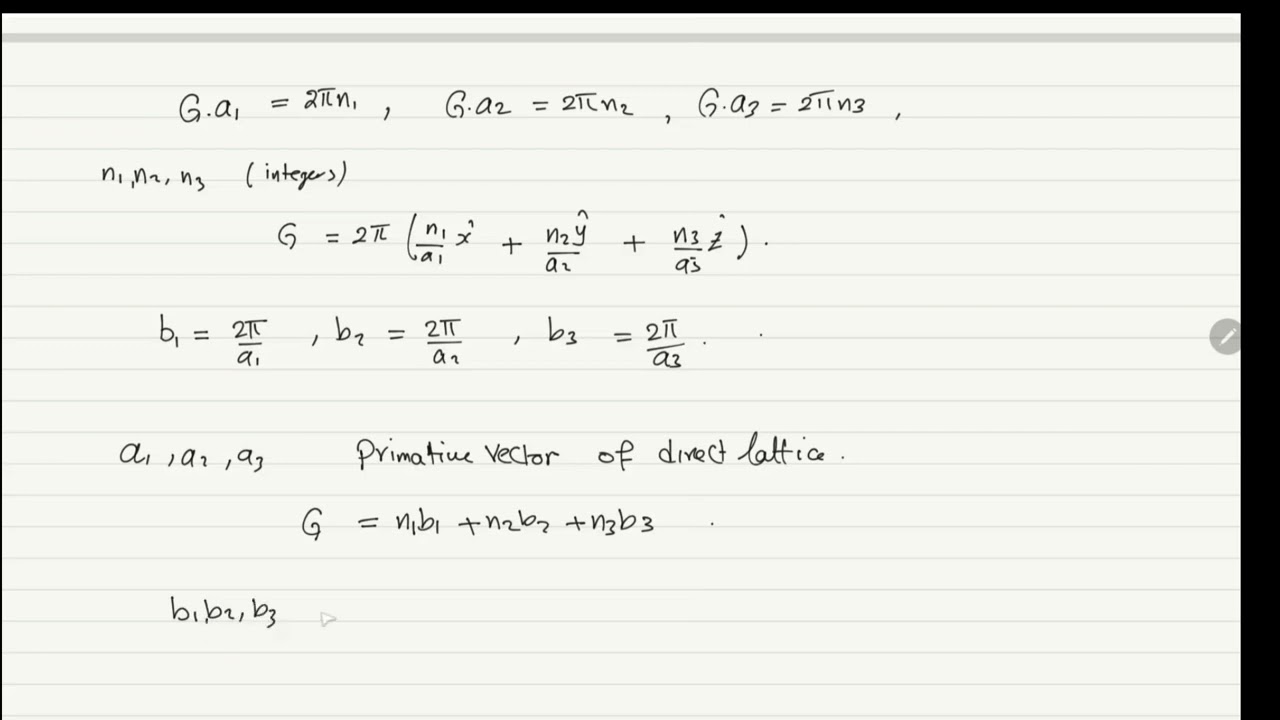 G.a₁ = 2πn₁ , G.a₂ = 2πn₂ , G.a₃ = 2πn₃ ,
n₁,n₂, n₃ (integers)
G = 2π (n₁/a₁ x̂ + n₂/a₂ ŷ + n₃/a₃ ẑ) .
b₁ = 2π/a₁ , b₂ = 2π/a₂ , b₃ = 2π/a₃ .
a₁ , a₂ , a₃ Primative vector of direct lattice .
G = n₁b₁ + n₂b₂ + n₃b₃ .
b₁,b₂, b₃